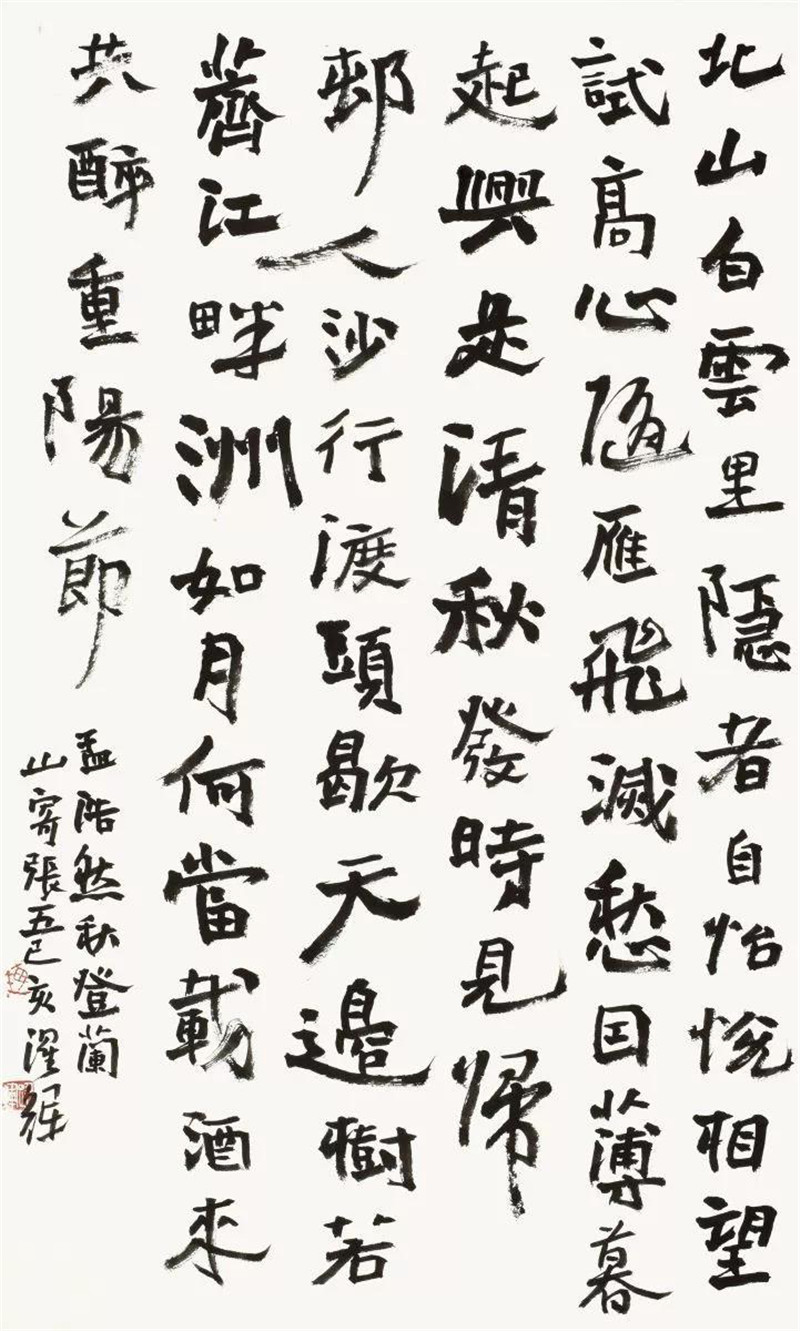 北山白雲里隱者自怡悅相望
試高心隨雁飛滅愁因薄暮
起興是清秋發時見歸
邨人沙行渡頭歇天邊樹若
薺江畔洲如月何當載酒來
共醉重陽節
孟浩然秋登蘭
山寄張五己亥濯